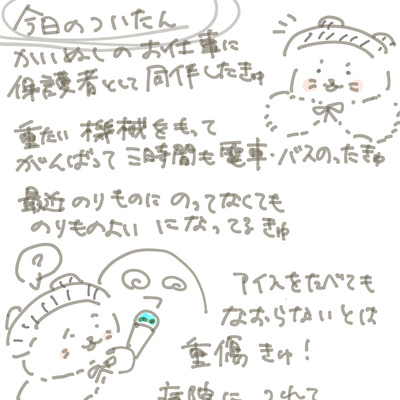 今日のついたん
かいぬしのお仕事に
保護者として同伴したきゅ
重たい機械をもって
がんばって三時間も電車・バスのったきゅ
最近のりものにのってなくても
のりものよいになってるきゅ
?
アイスをたべても
なおらないとは
重傷きゅ!
病院につれて